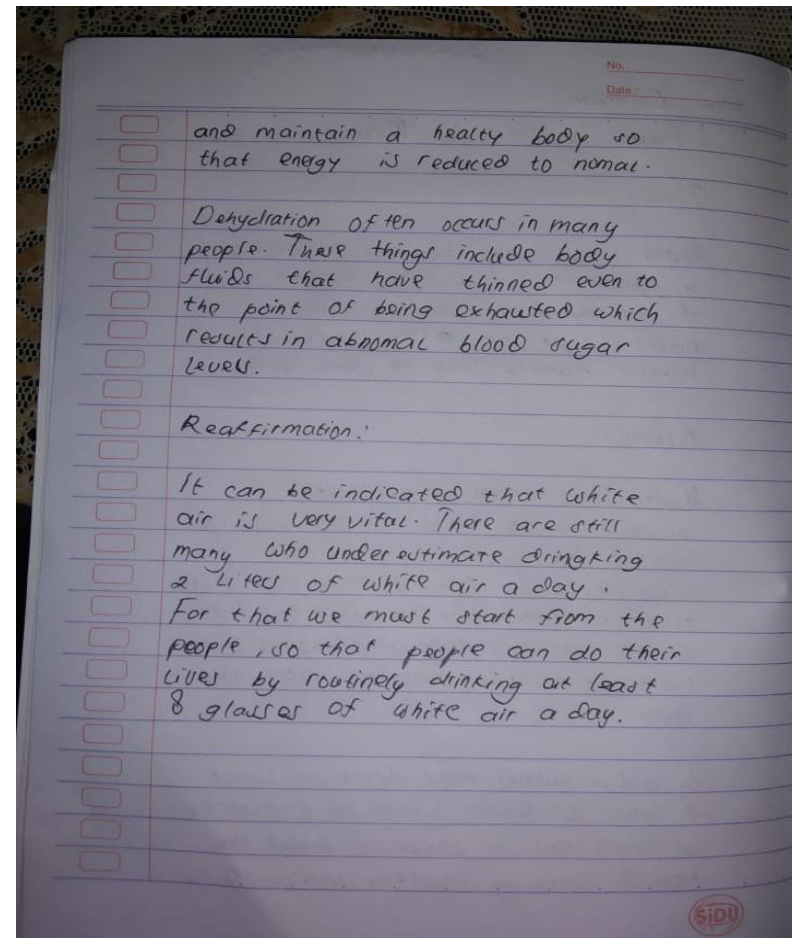 No.
Date :
and maintain a healty body so
that energy is reduced to nomal.
Dehydration often occurs in many
people. These things include body
fluids that have thinned even to
the point of being exhausted which
results in abnomal blood sugar
levels.
Reaffirmation :
It can be indicated that white
air is very vital. There are still
many who underestimate dringking
2 liters of white air a day.
For that we must start from the
people, so that people can do their
lives by routinely drinking at least
8 glasses of white air a day.
SiDU